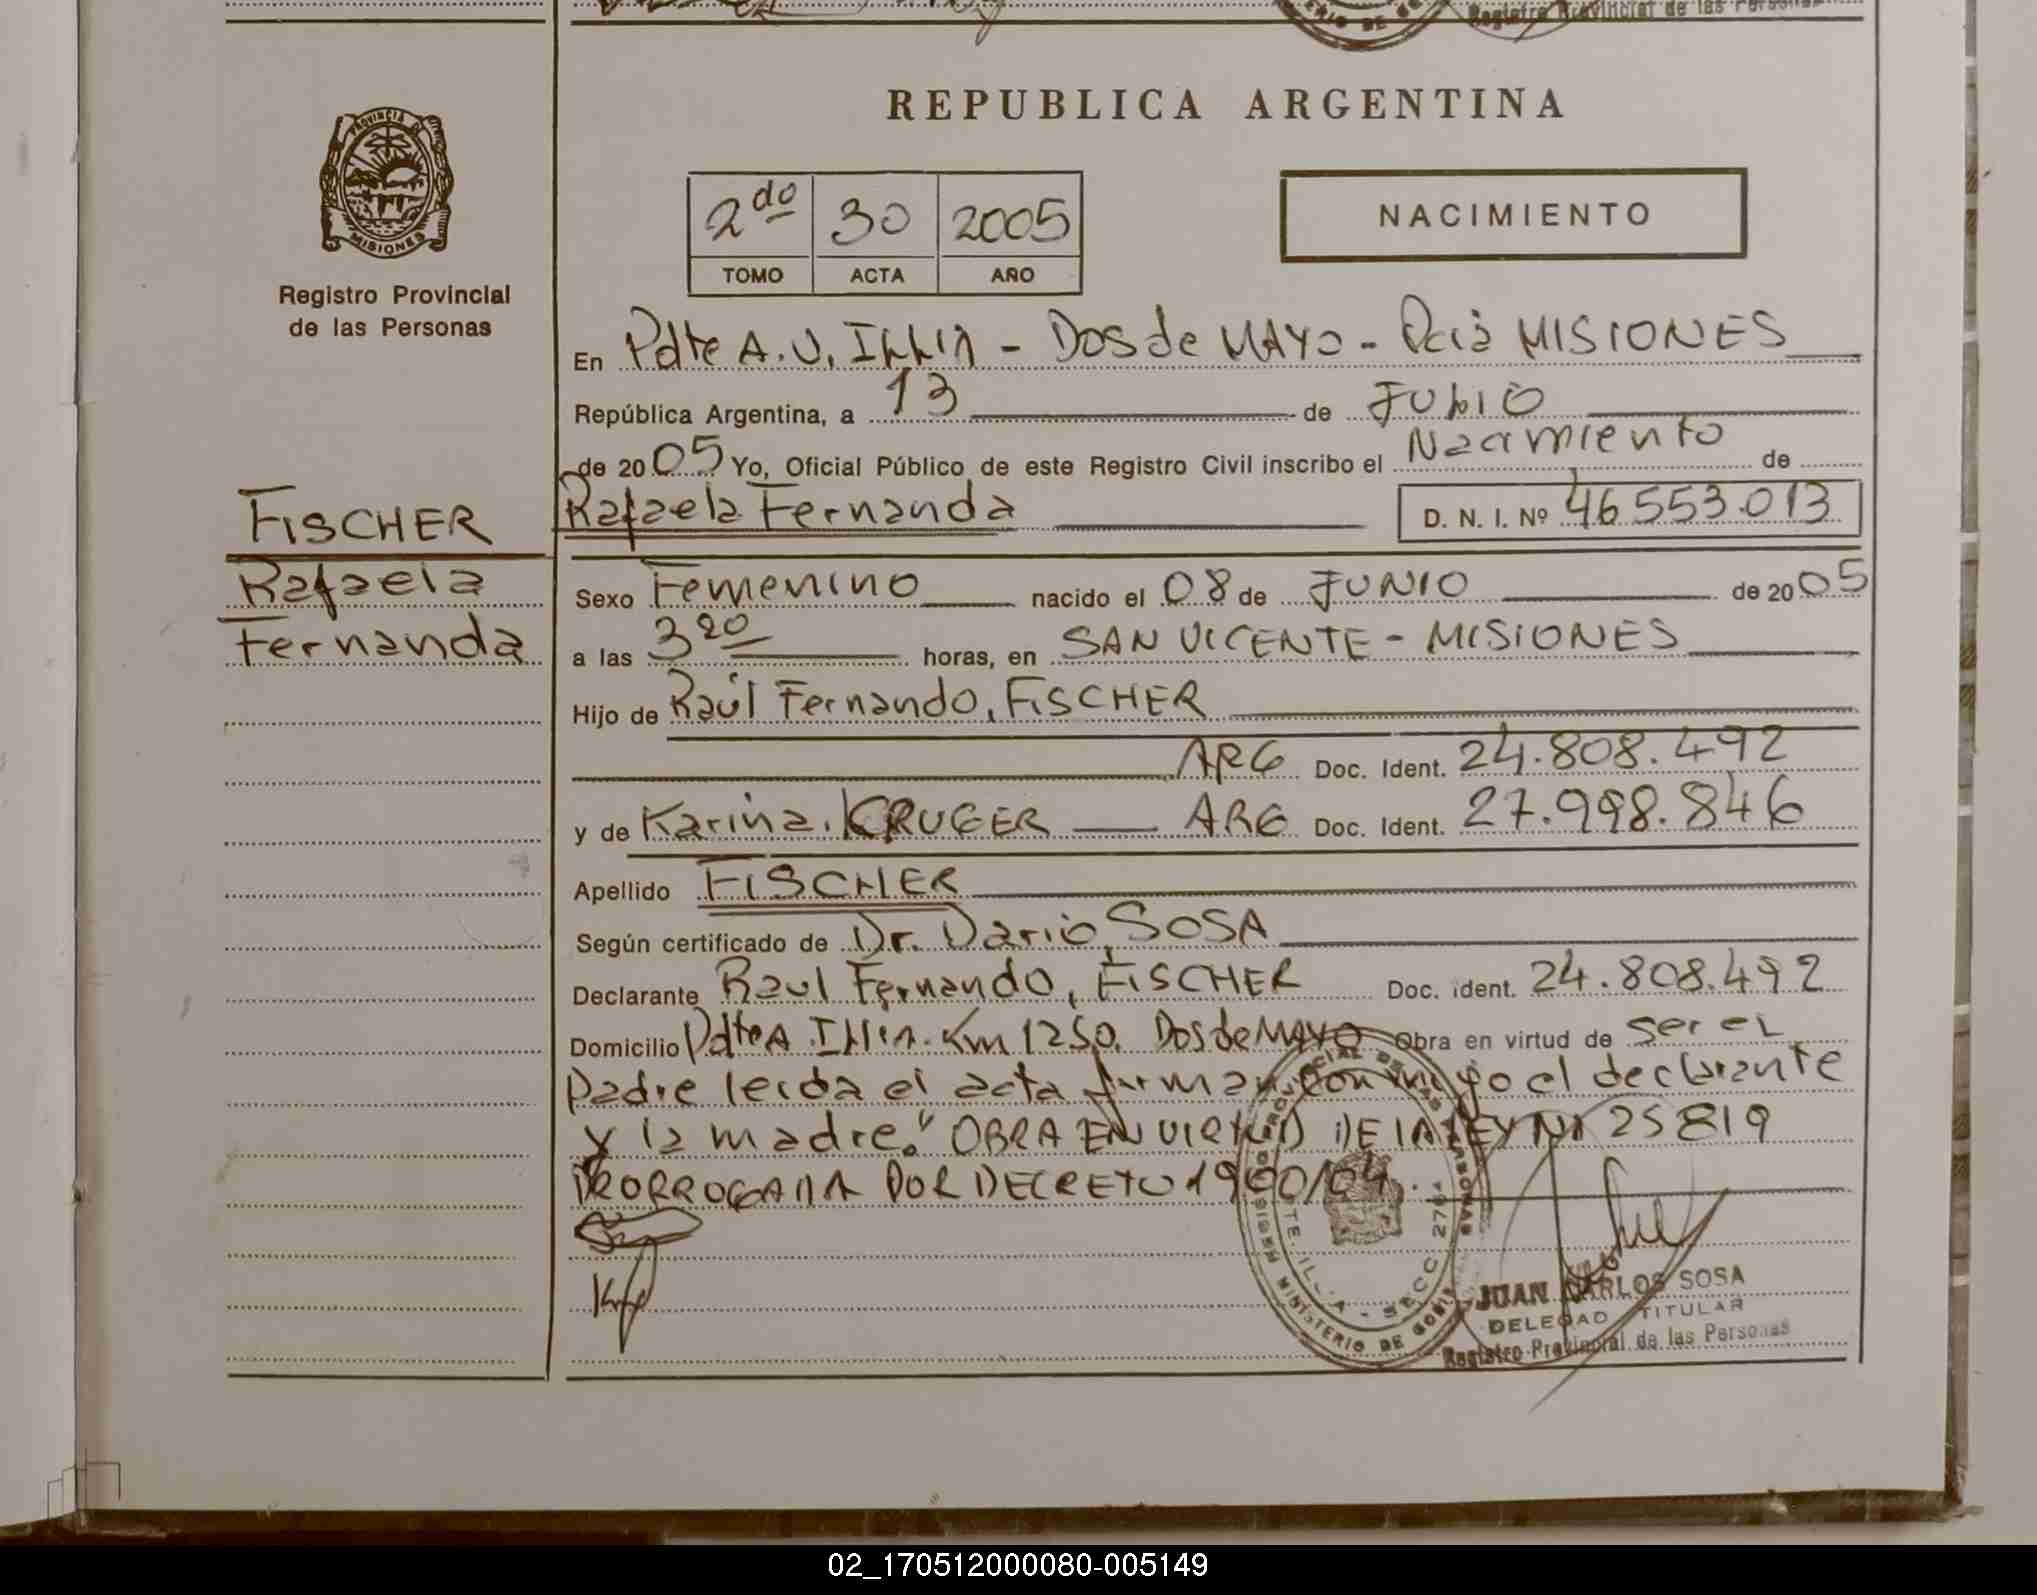 Registro Provincial de las Personas
REPUBLICA ARGENTINA
PROVINCIA DE
MISIONES
Registro Provincial
de las Personas
2do 30 2005
TOMO ACTA AÑO
NACIMIENTO
En Pdte A.U. ILLIA - Dos de MAYO - Pciá MISIONES
República Argentina, a 13 de JULIO
de 2005 Yo, Oficial Público de este Registro Civil inscribo el Nacimiento de
Rafaela Fernanda D. N. I. Nº 46.553.013
FISCHER
Rafaela
Fernanda
Sexo Femenino nacido el 08 de JUNIO de 2005
a las 3 20 horas, en SAN VICENTE - MISIONES
Hijo de Raúl Fernando, FISCHER
ARG Doc. Ident. 24.808.492
y de Karina, KRUGER ARG Doc. Ident. 27.998.846
Apellido FISCHER
Según certificado de Dr. Dario, SOSA
Declarante Raul Fernando, FISCHER Doc. ident. 24.808.492
Domicilio Pdte A. Illia. Km 1250. Dos de MAYO Obra en virtud de ser el
Padre leida el acta firman conmigo el declarante
y la madre." OBRA EN VIRTUD DE LA LEY Nº 25819
PRORROGADA POR DECRETO 1900/04.
MINISTERIO DE GOBIERNO
JUAN CARLOS SOSA
DELEGADO TITULAR
Registro Provincial de las Personas
02_170512000080-005149